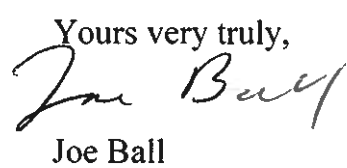 Yours very truly,
Joe Ball
Joe Ball